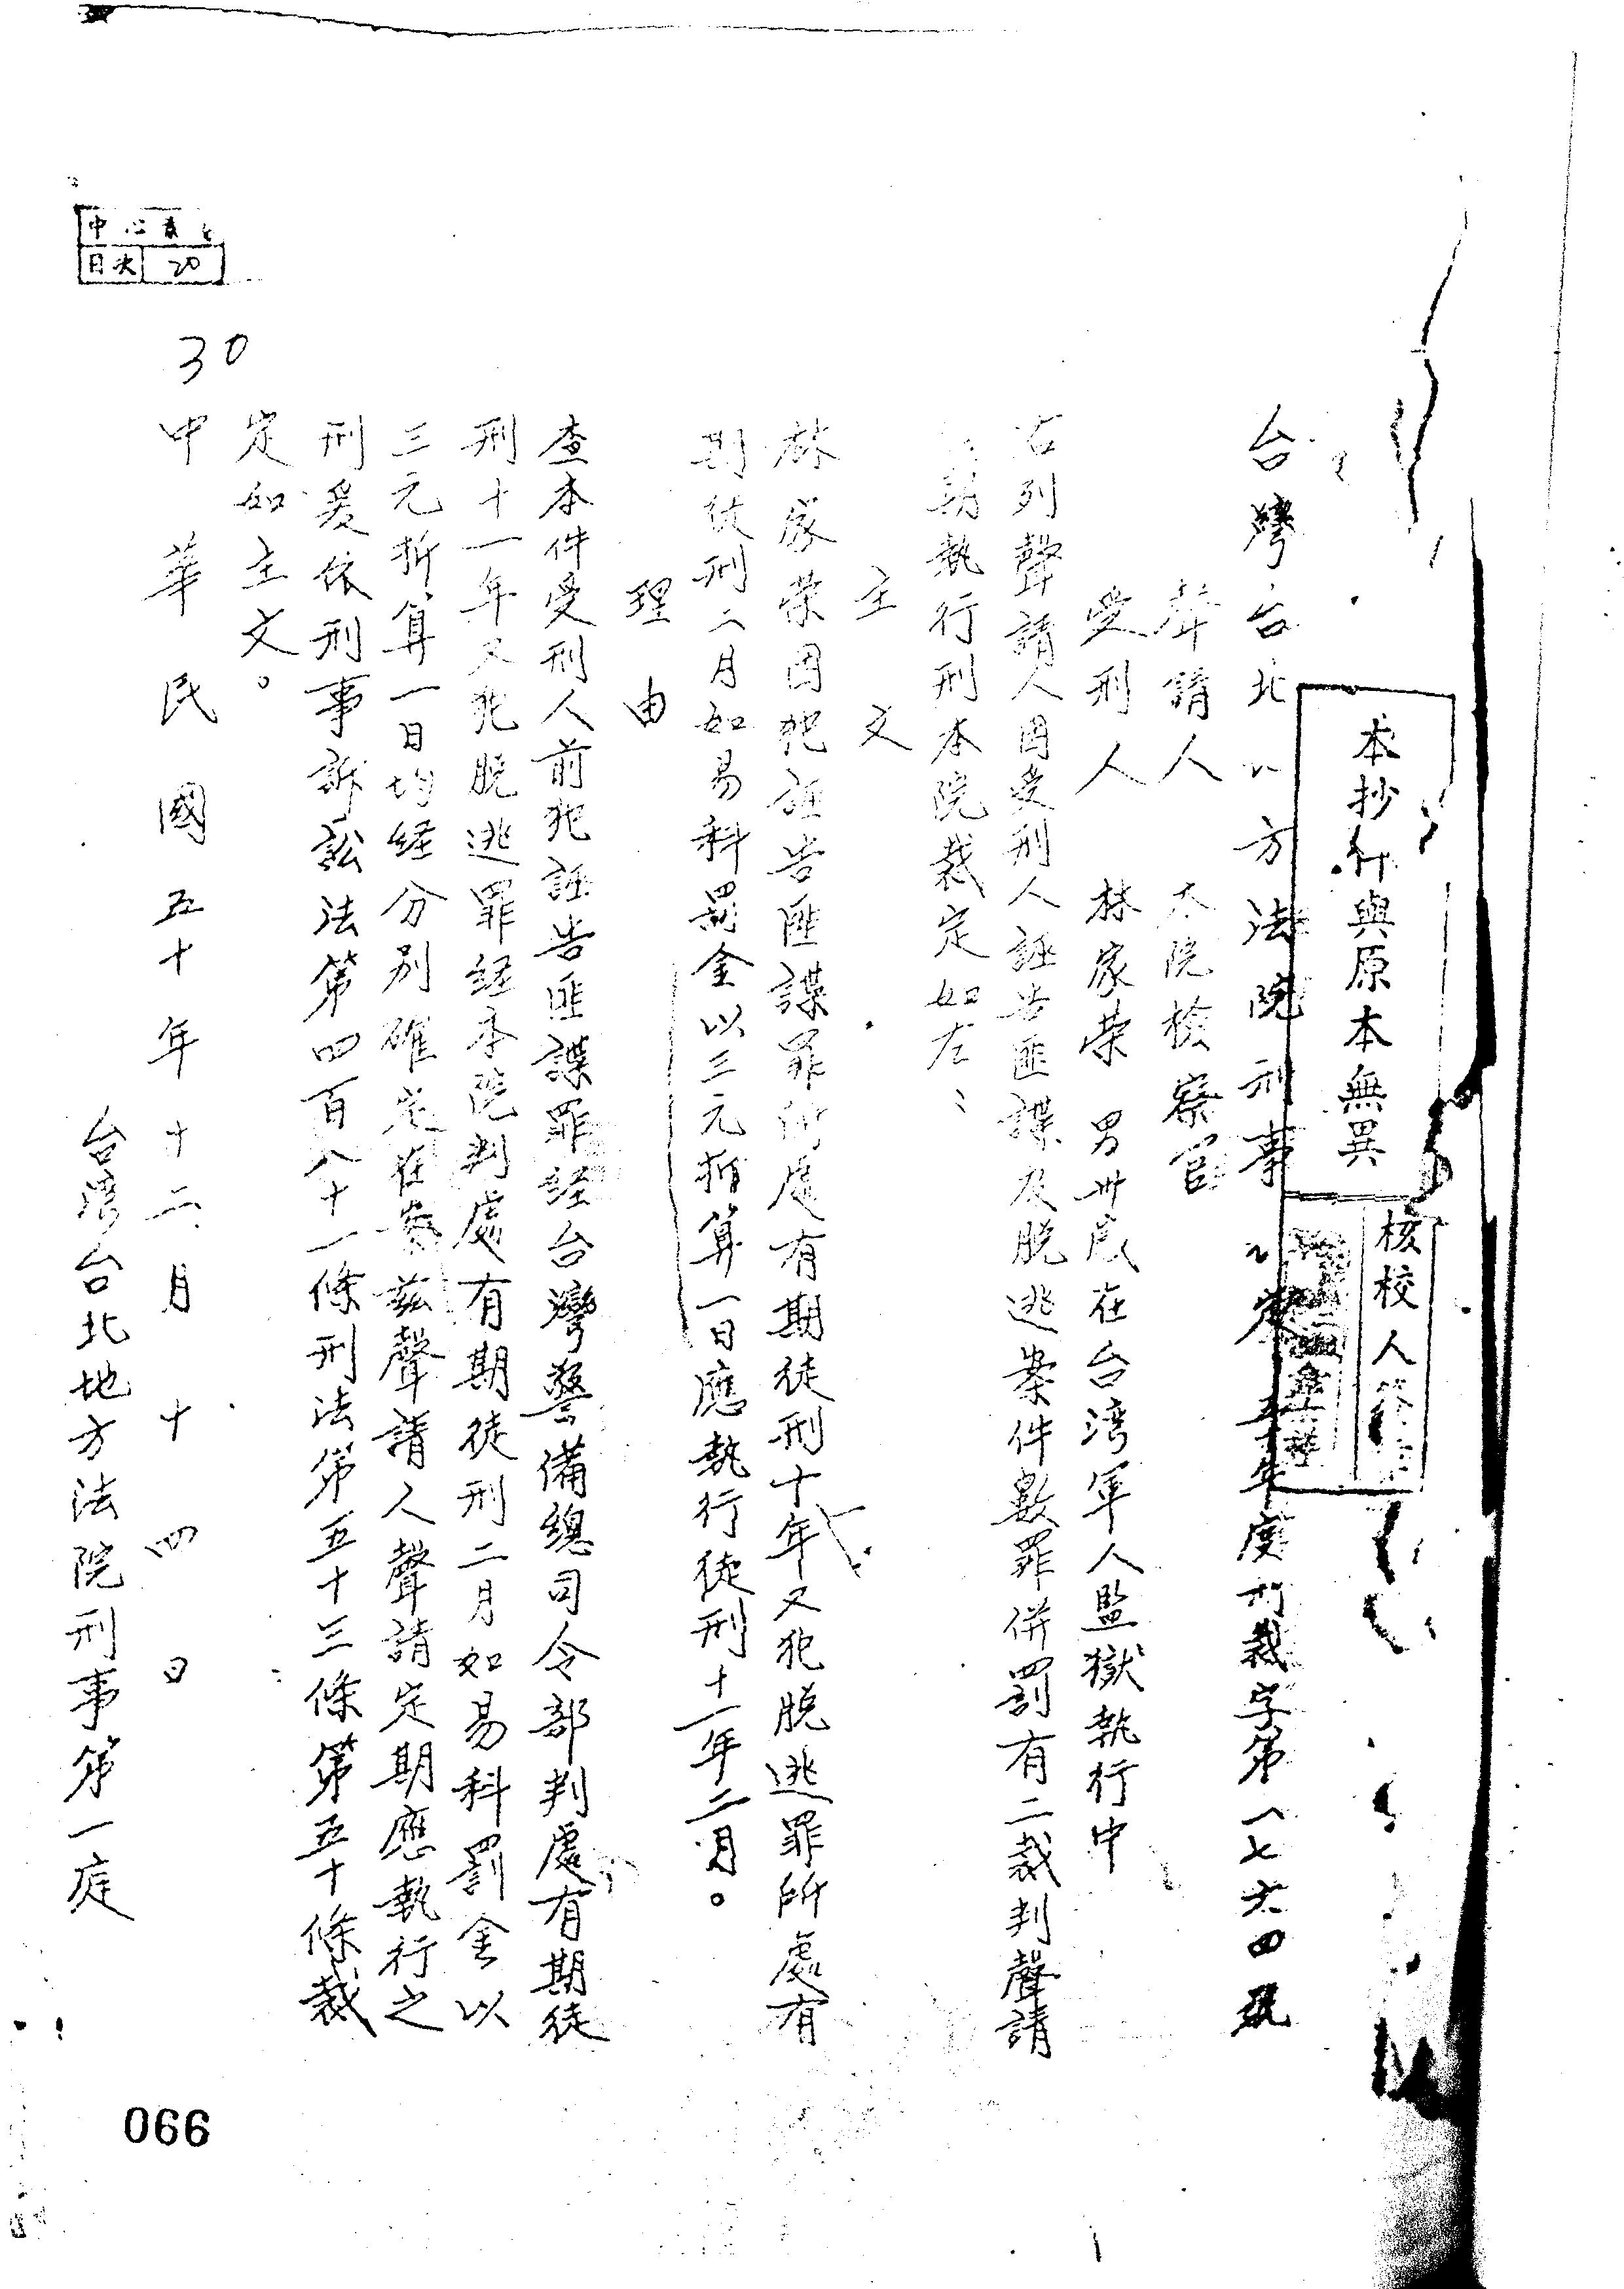 本抄件與原本無異
核校人
台灣台北地方法院刑事裁定 五十年度刑裁字第一七六四號
聲請人 本院檢察官
受刑人 林家荣 男卅歲在台湾軍人監獄執行中
右列聲請人因受刑人誣告匪諜及脫逃案件數罪併罰有二裁判聲請
期執行刑本院裁定如左:
主文
林家荣因犯誣告匪諜罪所處有期徒刑十年又犯脫逃罪所處有
期徒刑二月如易科罰金以三元折算一日應執行徒刑十一年二月。
理由
查本件受刑人前犯誣告匪諜罪経台灣警備總司令部判處有期徒
刑十一年又犯脫逃罪経本院判處有期徒刑二月如易科罰金以
三元折算一日均経分別確定在案茲聲請人聲請定期應執行之
刑爰依刑事訴訟法第四百八十一條刑法第五十三條第五十條裁
定如主文。
中華民國五十年十二月十四日
台湾台北地方法院刑事第一庭
30
目次 20
066